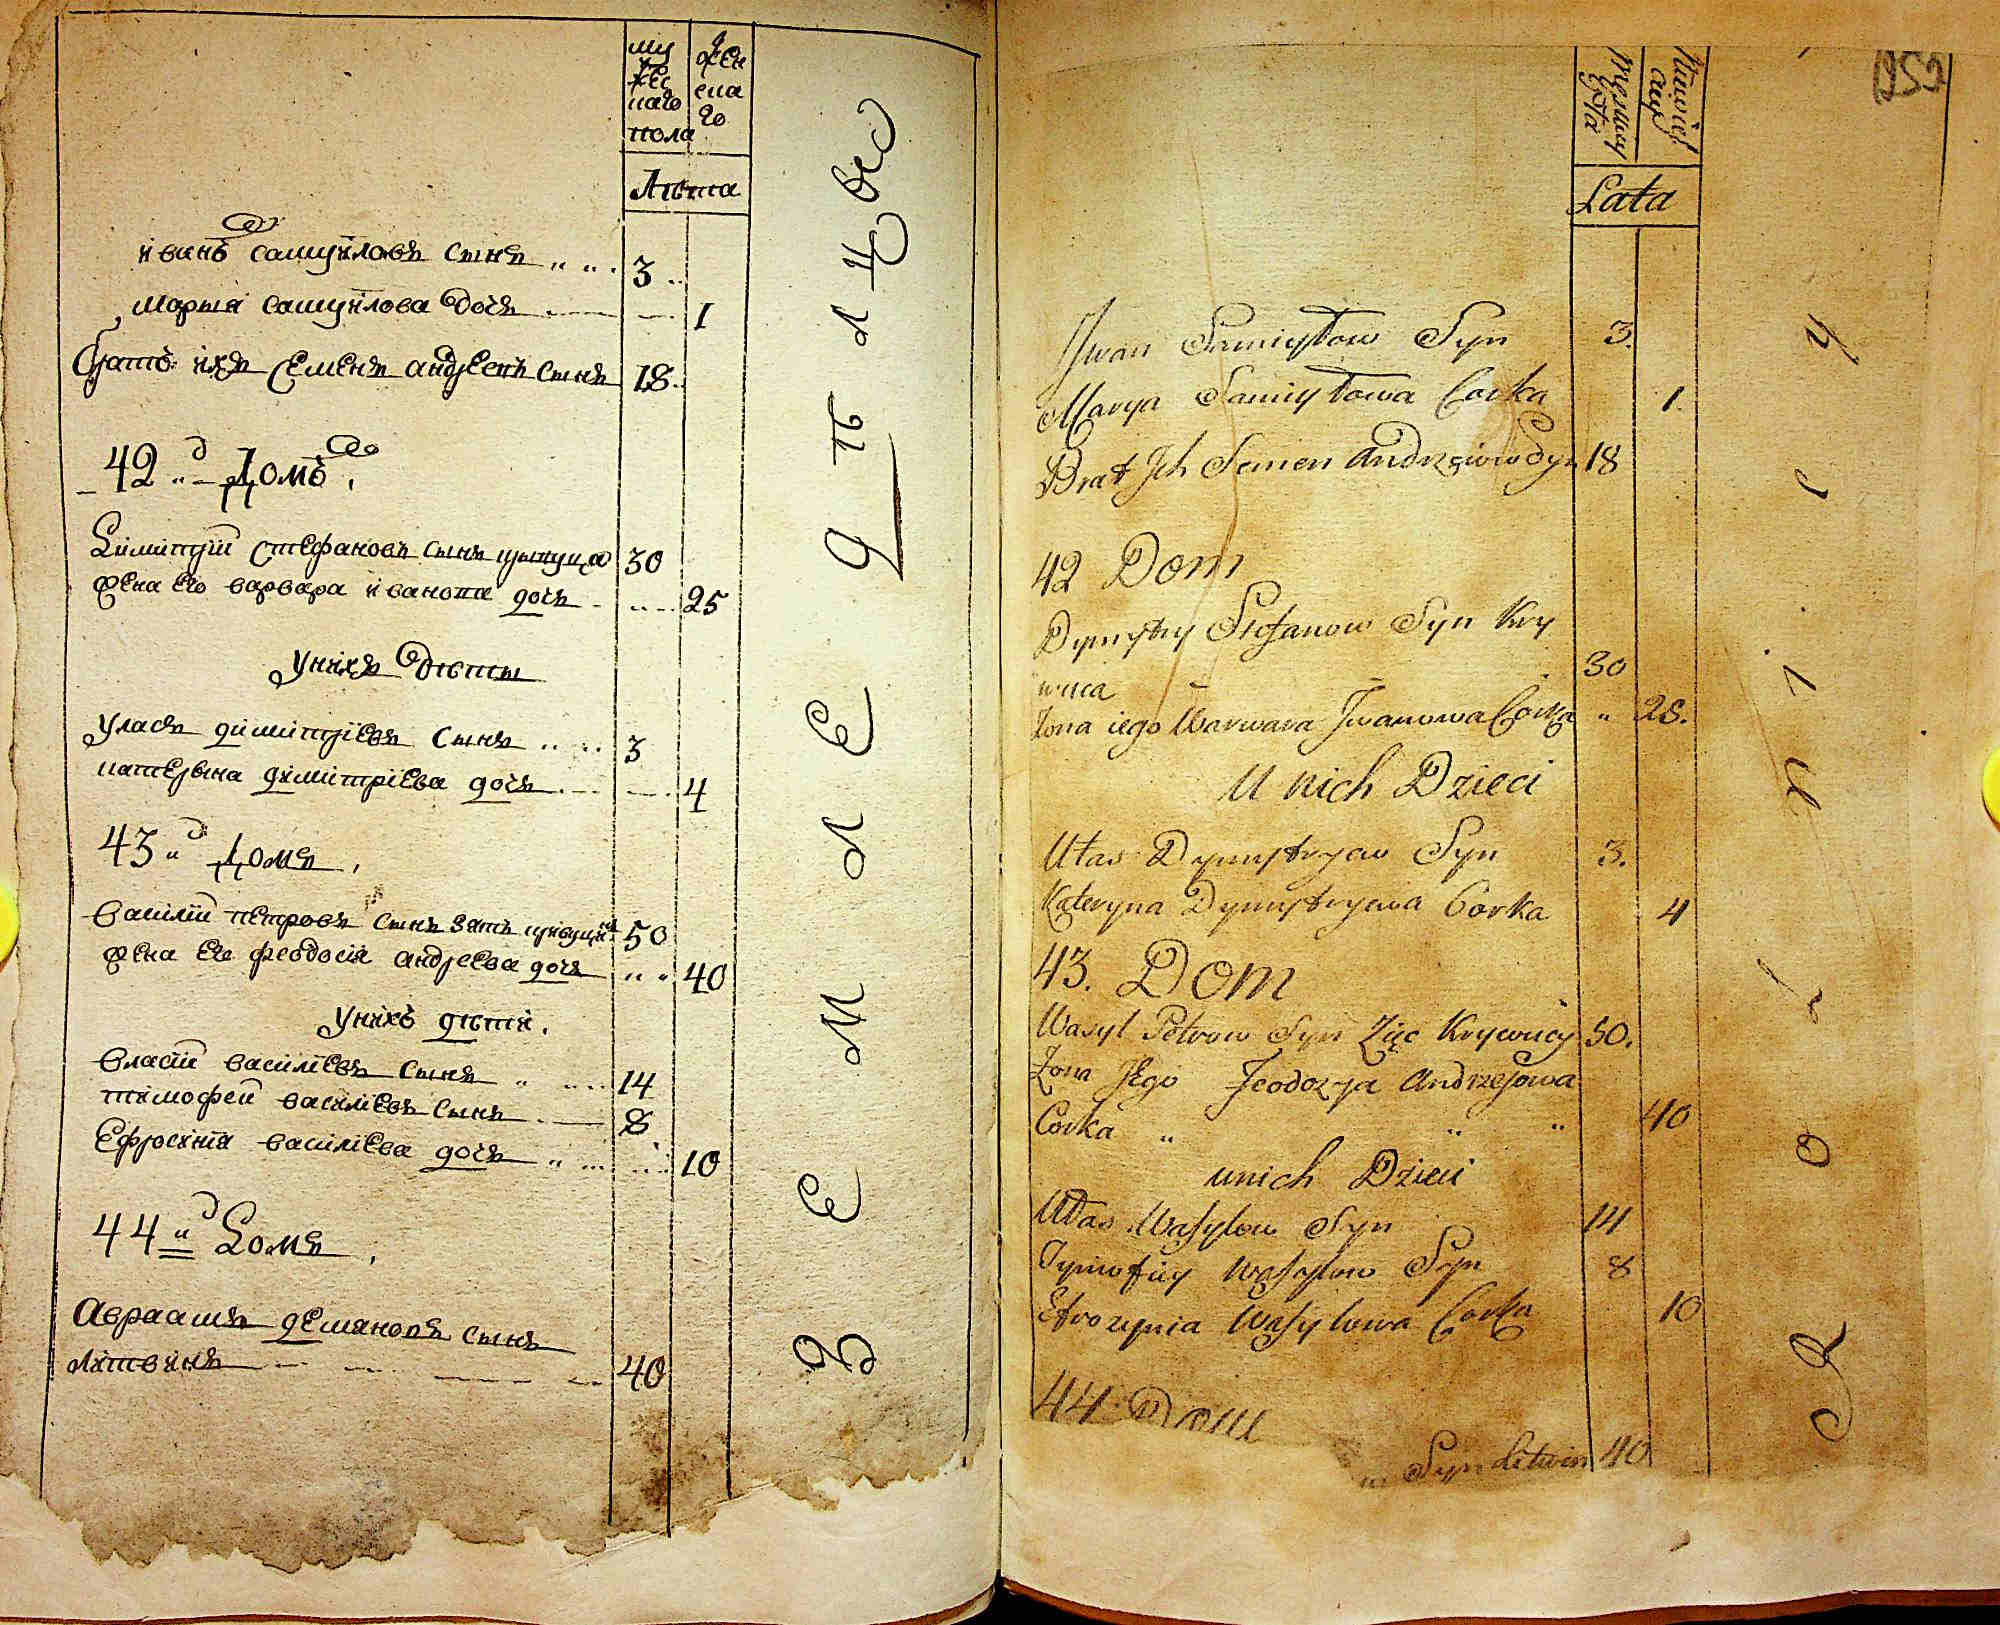 му
жес
каго
пола
жен
ска
го
Лѣта
иванъ самуиловъ сынъ 3
марья самуилова дочь 1
братъ ихъ семенъ андреевъ сынъ 18
42 Домъ
Димитрiй стефановъ сынъ 30
жена его варвара иванова дочь 25
у нихъ дѣти
уласъ димитрiевъ сынъ 3
катерына димитрiева дочь 4
43 Домъ
василiй петровъ сынъ зять 50
жена его феодосiя андреева дочь 40
у нихъ дѣти
власiй василiевъ сынъ 14
тимофей василiевъ сынъ 8
Ефросинiя василiева дочь 10
44 Домъ
авраамъ демяновъ сынъ
литвинъ 40
ЗЕМЛЕДѢЛЦЫ
Lata
Iwan Samuyłow Syn 3.
Marya Samuyłowa Corka 1
Brat Ich Semen Andrzeiow Syn 18
42 Dom
Dymytry Stefanow Syn Kry
wuca 30
Żona iego Warwara Iwanowa Corka 25.
U nich Dzieci
Ułas Dymytryew Syn 3.
Kateryna Dymytryewa Corka 4
43. Dom
Wasyl Petrow Syn Zięc Krywucy 50.
Żona Jego Feodozya Andrzejowa
Corka 40
unich Dzieci
Ułas Wasylow Syn 14
Tymofiey Wasylow Syn 8
Efrozynia Wasylowa Corka 10
44 Dom
Syn Litwin 40
Rolnicy